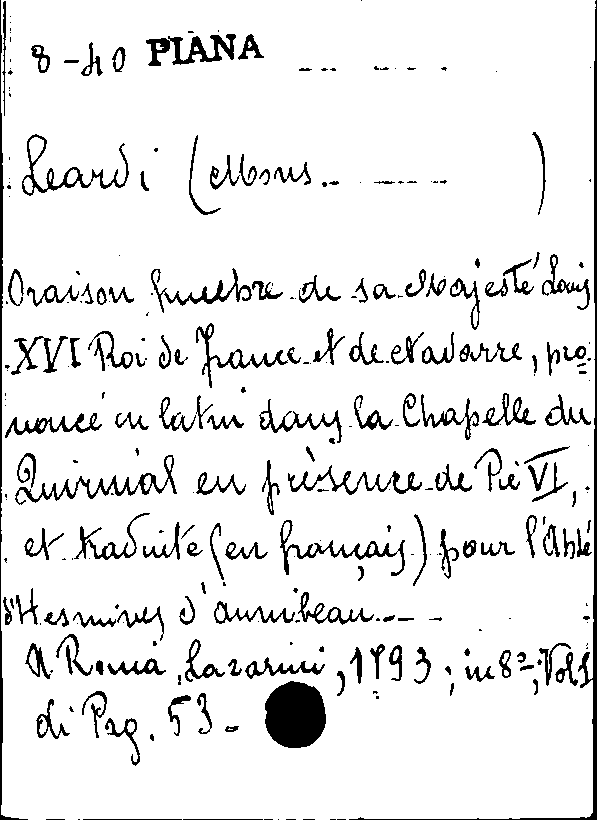 8-40 PIANA
Leardi (Mons.. )
Oraison funebre de sa Majesté Louis
XVI Roi de France et de Navarre, pro=
noncé en latin dans la Chapelle du
Quirinal en présence de Pie VI,
et traduite (en français) pour l'Abbé
d'Hesmivy d'Auribeau...
A Roma, Lazarini, 1793; in 8°-; Vol 1
di Pag. 53-